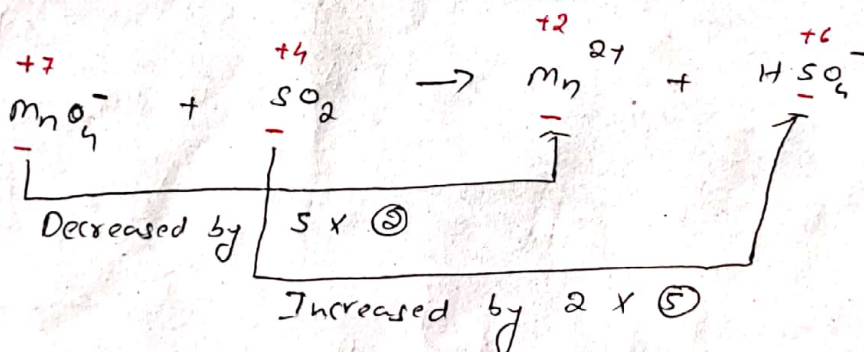 +7 +4 +2 +6
MnO₄⁻ + SO₂ → Mn²⁺ + HSO₄⁻
Decreased by 5 x ②
Increased by 2 x ⑤